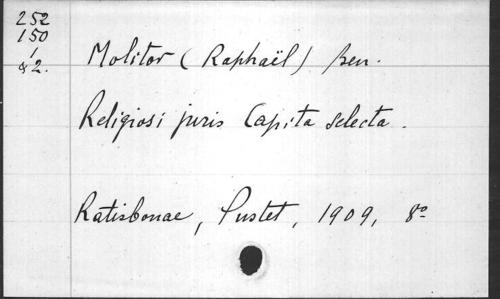 252
150
1
&2.
Molitor (Raphaël) ben.
Religiosi juris Capita selecta.
Ratisbonae, Pustet, 1909, 8º